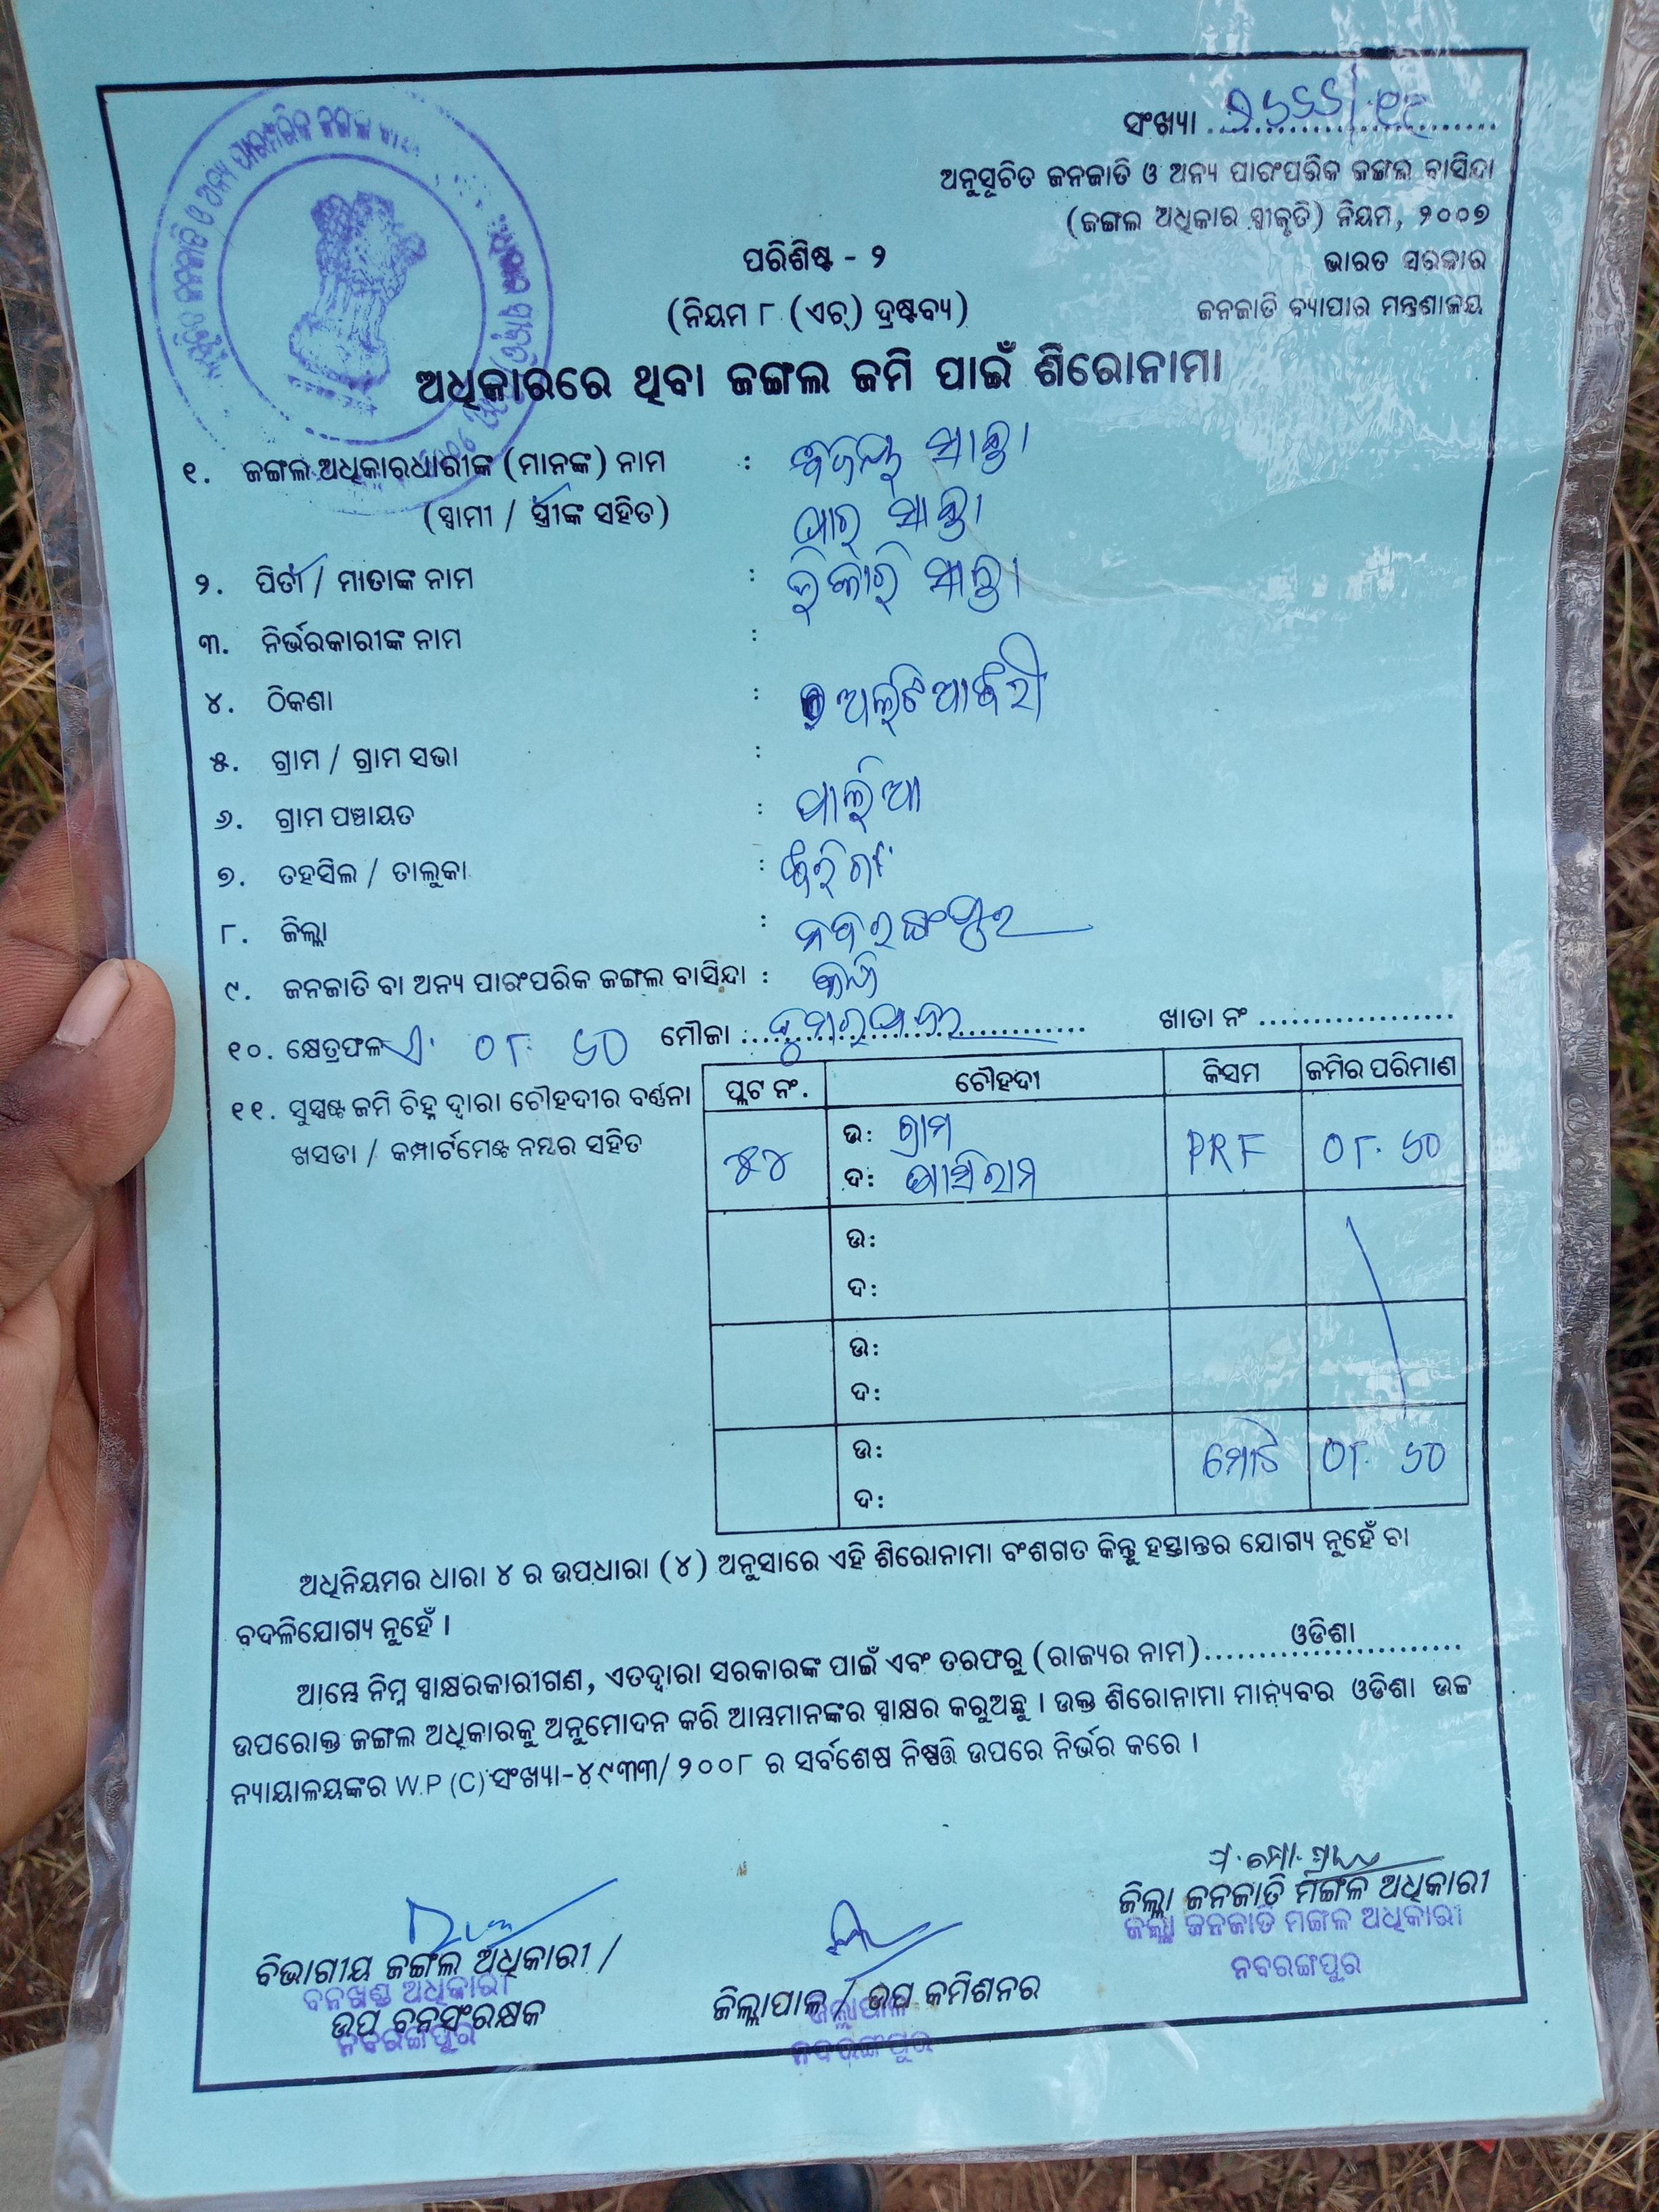 ସଂଖ୍ୟା
ଅନୁସୂଚିତ ଜନଜାତି ଓ ଅନ୍ୟ ପାରଂପରିକ ଜଙ୍ଗଲ ବାସିନ୍ଦା
(ଜଙ୍ଗଲ ଅଧିକାର ସ୍ୱୀକୃତି) ନିୟମ, ୨୦୦୭
ପରିଶିଷ୍ଟ - ୨
ଭାରତ ସରକାର
(ନିୟମ ୮ (ଏଚ୍) ଦ୍ରଷ୍ଟବ୍ୟ)
ଜନଜାତି ବ୍ୟାପାର ମନ୍ତ୍ରଣାଳୟ
ଅଧିକାରରେ ଥିବା ଜଙ୍ଗଲ ଜମି ପାଇଁ ଶିରୋନାମା
୧. ଜଙ୍ଗଲ ଅଧିକାରଧାରୀଙ୍କ (ମାନଙ୍କ) ନାମ :
(ସ୍ୱାମୀ / ସ୍ତ୍ରୀଙ୍କ ସହିତ)
୨. ପିତା / ମାତାଙ୍କ ନାମ :
୩. ନିର୍ଭରକାରୀଙ୍କ ନାମ :
୪. ଠିକଣା :
୫. ଗ୍ରାମ / ଗ୍ରାମ ସଭା :
୬. ଗ୍ରାମ ପଞ୍ଚାୟତ :
୭. ତହସିଲ / ତାଲୁକା :
୮. ଜିଲ୍ଲା : ନବରଙ୍ଗପୁର
୯. ଜନଜାତି ବା ଅନ୍ୟ ପାରଂପରିକ ଜଙ୍ଗଲ ବାସିନ୍ଦା :
୧୦. କ୍ଷେତ୍ରଫଳ ଏ. ୦୮. ୬୦ ମୌଜା ଖାତା ନଂ
୧୧. ସୁସ୍ପଷ୍ଟ ଜମି ଚିହ୍ନ ଦ୍ୱାରା ଚୌହଦୀର ବର୍ଣ୍ଣନା
ଖସଡା / କମ୍ପାର୍ଟମେଣ୍ଟ ନମ୍ବର ସହିତ
ପ୍ଲଟ ନଂ. ଚୌହଦୀ କିସମ ଜମିର ପରିମାଣ
୫୪ ଉ: ଗ୍ରାମ PRF ୦୮. ୬୦
ଦ:
ଉ:
ଦ:
ଉ:
ଦ:
ଉ: ମୋଟ ୦୮. ୬୦
ଦ:
ଅଧିନିୟମର ଧାରା ୪ ର ଉପଧାରା (୪) ଅନୁସାରେ ଏହି ଶିରୋନାମା ବଂଶଗତ କିନ୍ତୁ ହସ୍ତାନ୍ତର ଯୋଗ୍ୟ ନୁହେଁ ବା
ବଦଳିଯୋଗ୍ୟ ନୁହେଁ ।
ଆମ୍ଭେ ନିମ୍ନ ସ୍ୱାକ୍ଷରକାରୀଗଣ, ଏତଦ୍ୱାରା ସରକାରଙ୍କ ପାଇଁ ଏବଂ ତରଫରୁ (ରାଜ୍ୟର ନାମ) ଓଡିଶା
ଉପରୋକ୍ତ ଜଙ୍ଗଲ ଅଧିକାରକୁ ଅନୁମୋଦନ କରି ଆମ୍ଭମାନଙ୍କର ସ୍ୱାକ୍ଷର କରୁଅଛୁ । ଉକ୍ତ ଶିରୋନାମା ମାନ୍ୟବର ଓଡିଶା ଉଚ୍ଚ
ନ୍ୟାୟାଳୟଙ୍କର W.P (C) ସଂଖ୍ୟା-୪୯୩୩/ ୨୦୦୮ ର ସର୍ବଶେଷ ନିଷ୍ପତ୍ତି ଉପରେ ନିର୍ଭର କରେ ।
ଜିଲ୍ଲା ଜନଜାତି ମଙ୍ଗଳ ଅଧିକାରୀ
ଜିଲ୍ଲା ଜନଜାତି ମଙ୍ଗଳ ଅଧିକାରୀ
ନବରଙ୍ଗପୁର
ବିଭାଗୀୟ ଜଙ୍ଗଲ ଅଧିକାରୀ /
ବନଖଣ୍ଡ ଅଧିକାରୀ
ଉପ ବନସଂରକ୍ଷକ
ନବରଙ୍ଗପୁର
ଜିଲ୍ଲାପାଳ / ଉପ କମିଶନର
ଜିଲ୍ଲାପାଳ
ନବରଙ୍ଗପୁର